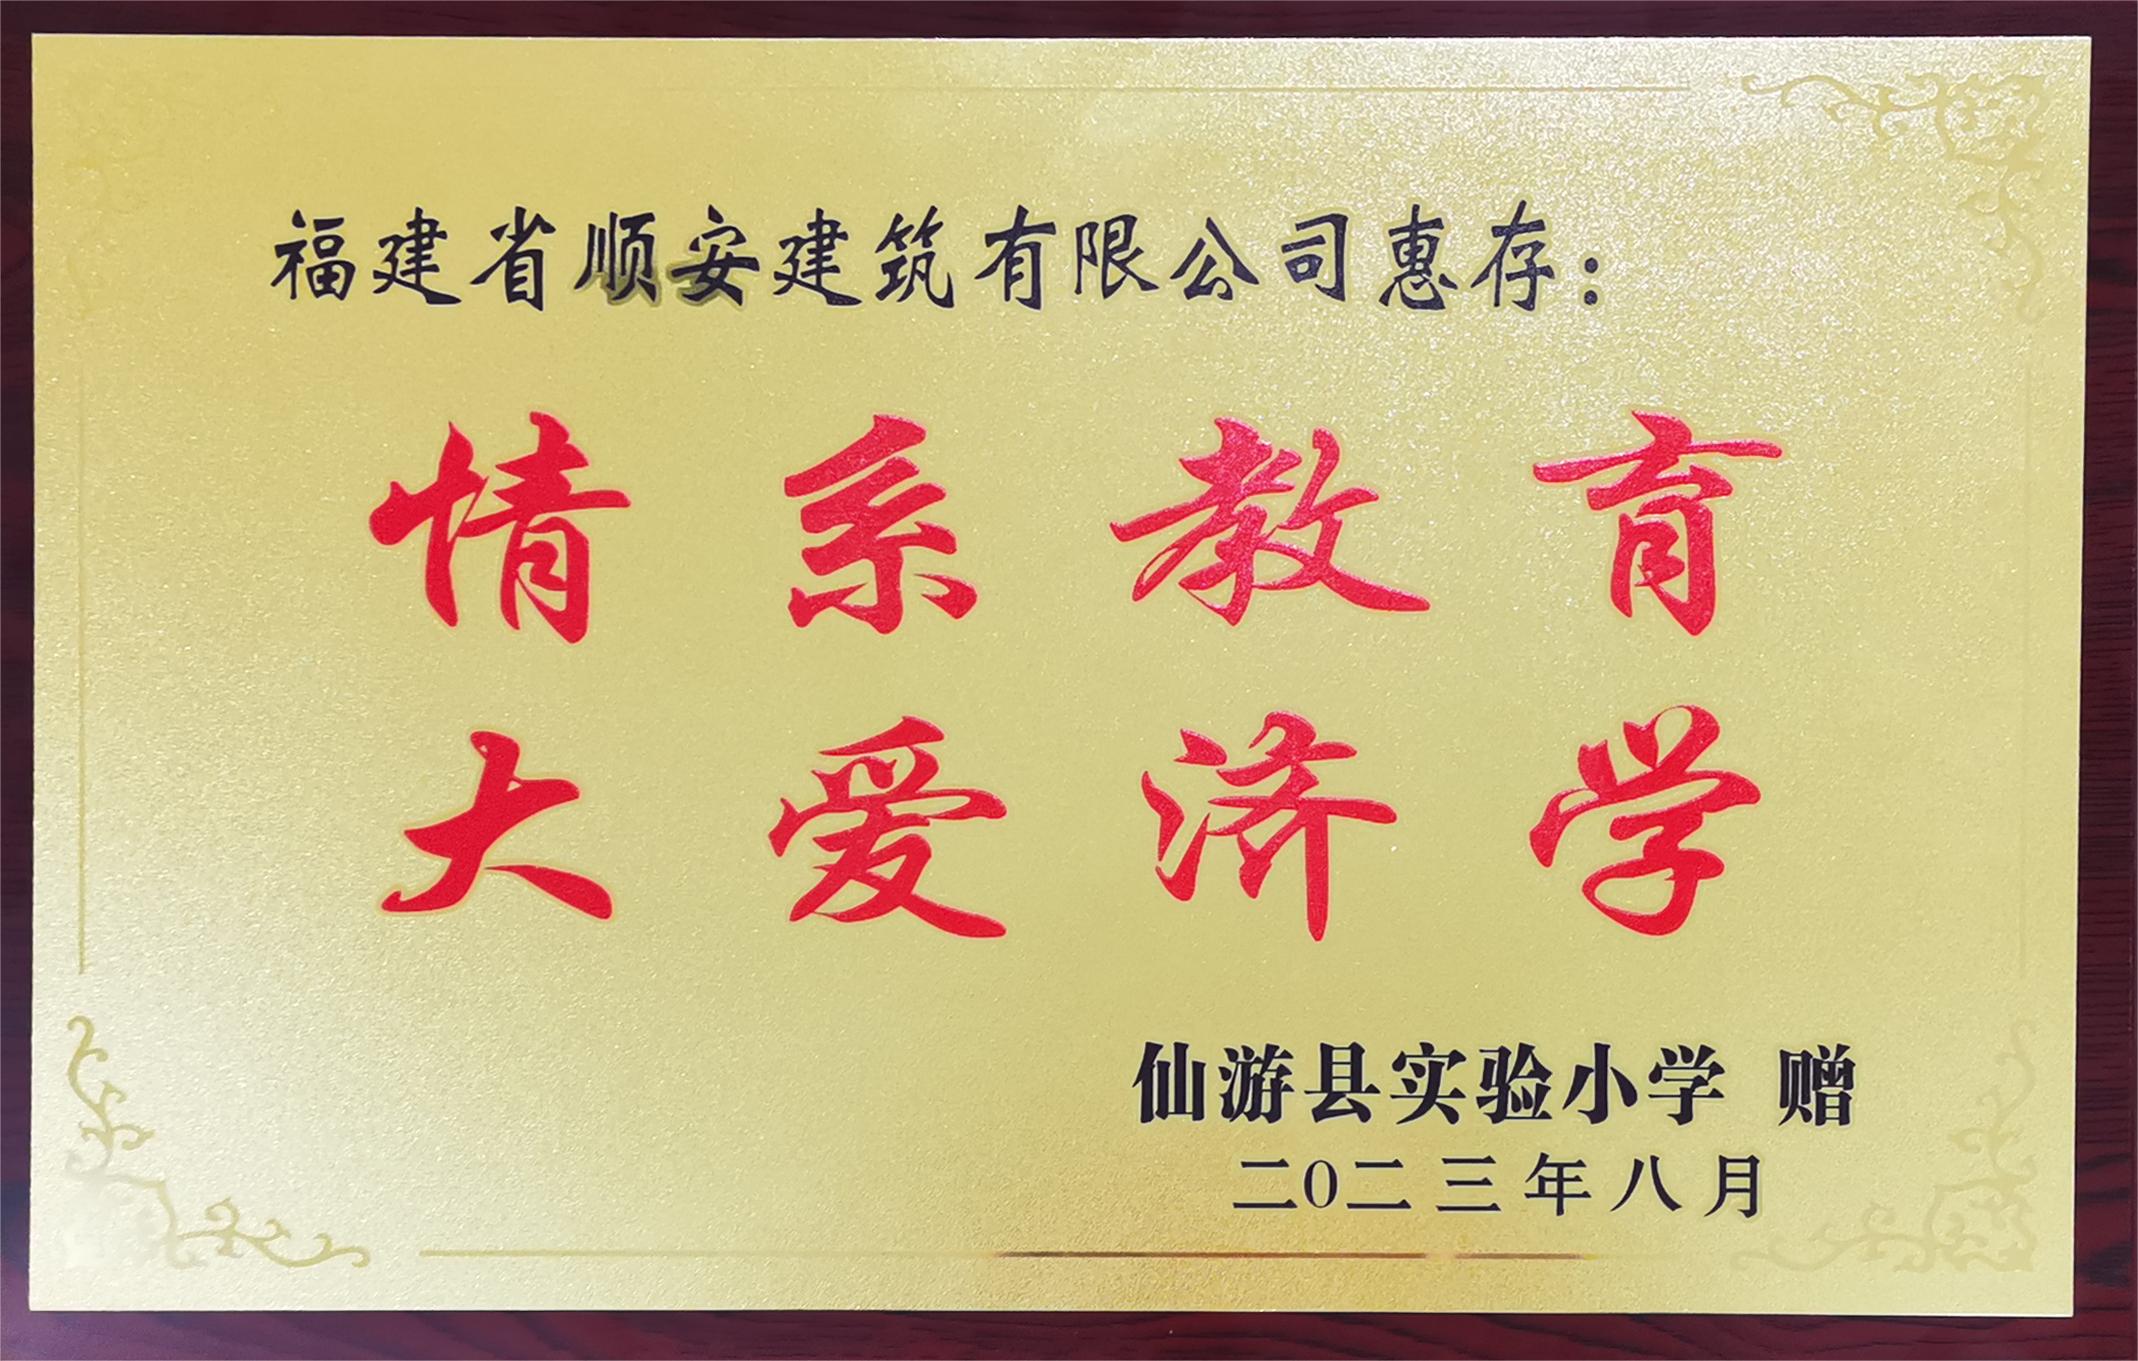 福建省顺安建筑有限公司惠存：
情系教育
大爱济学
仙游县实验小学 赠
二0二三年八月